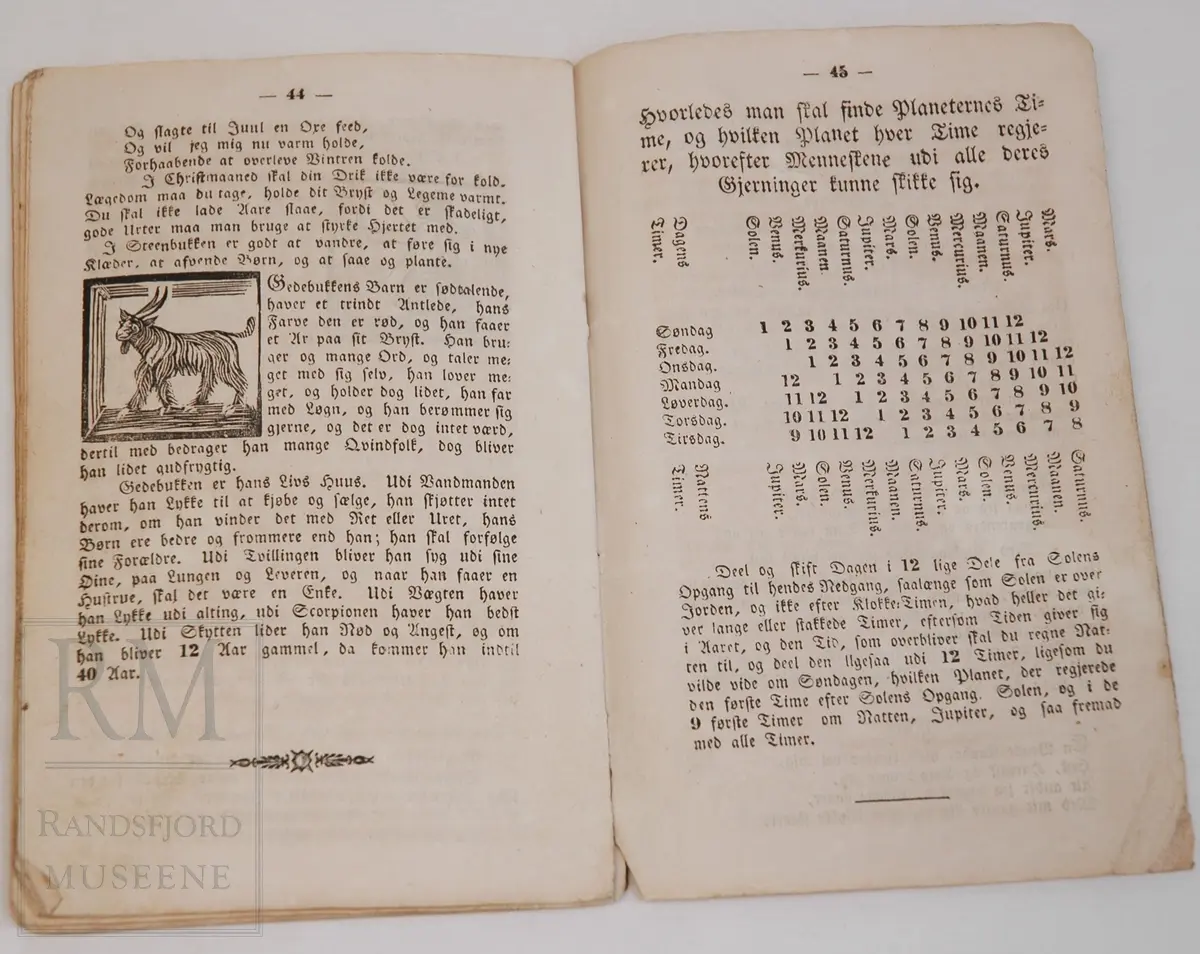 — 44 —
Og slagte til Juul en Oxe feed,
Og vil jeg mig nu varm holde,
Forhaabende at overleve Vintren kolde.
I Christmaaned skal din Drik ikke være for kold.
Lægedom maa du tage, holde dit Bryst og Legeme varmt.
Du skal ikke lade Aare slaae, fordi det er skadeligt,
gode Urter maa man bruge at styrke Hjertet med.
I Steenbukken er godt at vandre, at føre sig i nye
Klæder, at afvende Børn, og at saae og plante.
Gedebukkens Barn er sødtalende,
haver et trindt Antlede, hans
Farve den er rød, og han faaer
et Ar paa sit Bryst. Han bru-
ger og mange Ord, og taler me-
get med sig selv, han lover me-
get, og holder dog lidet, han far
med Løgn, og han berømmer sig
gjerne, og det er dog intet værd,
dertil med bedrager han mange Qvindfolk, dog bliver
han lidet gudfrygtig.
Gedebukken er hans Livs Huus. Udi Vandmanden
haver han Lykke til at kjøbe og sælge, han skjøtter intet
derom, om han vinder det med Ret eller Uret, hans
Børn ere bedre og frommere end han; han skal forfølge
sine Forældre. Udi Tvillingen bliver han syg udi sine
Øine, paa Lungen og Leveren, og naar han faaer en
Hustrue, skal det være en Enke. Udi Vægten haver
han Lykke udi alting, udi Scorpionen haver han bedst
Lykke. Udi Skytten lider han Nød og Angest, og om
han bliver 12 Aar gammel, da kommer han indtil
40 Aar.
RM
RANDSFJORD
MUSEENE
— 45 —
Hvorledes man skal finde Planeternes Ti-
me, og hvilken Planet hver Time regje-
rer, hvorefter Menneskene udi alle deres
Gjerninger kunne skikke sig.
Dagens
Timer.
Solen.
Venus.
Merkurius.
Maanen.
Saturnus.
Jupiter.
Mars.
Solen.
Venus.
Mercurius.
Maanen.
Saturnus.
Jupiter.
Mars.
Søndag 1 2 3 4 5 6 7 8 9 10 11 12
Fredag. 1 2 3 4 5 6 7 8 9 10 11 12
Onsdag. 1 2 3 4 5 6 7 8 9 10 11 12
Mandag 12 1 2 3 4 5 6 7 8 9 10 11
Løverdag. 11 12 1 2 3 4 5 6 7 8 9 10
Torsdag. 10 11 12 1 2 3 4 5 6 7 8 9
Tirsdag. 9 10 11 12 1 2 3 4 5 6 7 8
Nattens
Timer.
Jupiter.
Mars.
Solen.
Venus.
Merkurius.
Maanen.
Saturnus.
Jupiter.
Mars.
Solen.
Venus.
Mercurius.
Maanen.
Saturnus.
Deel og skift Dagen i 12 lige Dele fra Solens
Opgang til hendes Nedgang, saalænge som Solen er over
Jorden, og ikke efter Klokke-Timen, hvad heller det gi-
ver lange eller stakkede Timer, eftersom Tiden giver sig
i Aaret, og den Tid, som overbliver skal du regne Nat-
ten til, og deel den ligesaa udi 12 Timer, ligesom du
vilde vide om Søndagen, hvilken Planet, der regjerede
den første Time efter Solens Opgang. Solen, og i de
9 første Timer om Natten, Jupiter, og saa fremad
med alle Timer.